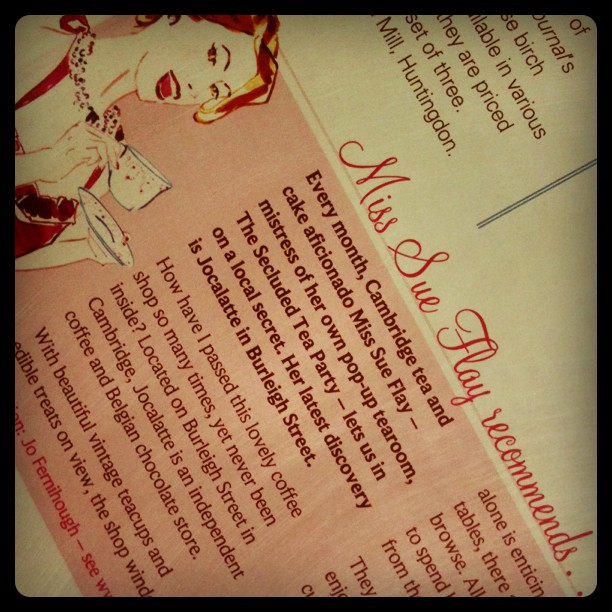 of
ournal's
se birch
ilable in various
hey are priced
set of three.
Mill, Huntingdon.
Miss Sue Flay recommends...
Every month, Cambridge tea and
cake aficionado Miss Sue Flay –
mistress of her own pop-up tearoom,
The Secluded Tea Party – lets us in
on a local secret. Her latest discovery
is Jocalatte in Burleigh Street.
How have I passed this lovely coffee
shop so many times, yet never been
inside? Located on Burleigh Street in
Cambridge, Jocalatte is an independent
coffee and Belgian chocolate store.
With beautiful vintage teacups and
edible treats on view, the shop wind
alone is enticin
tables, there
browse. All
to spend
from th
They
enj
cu
ion: Jo Fernihough – see ww